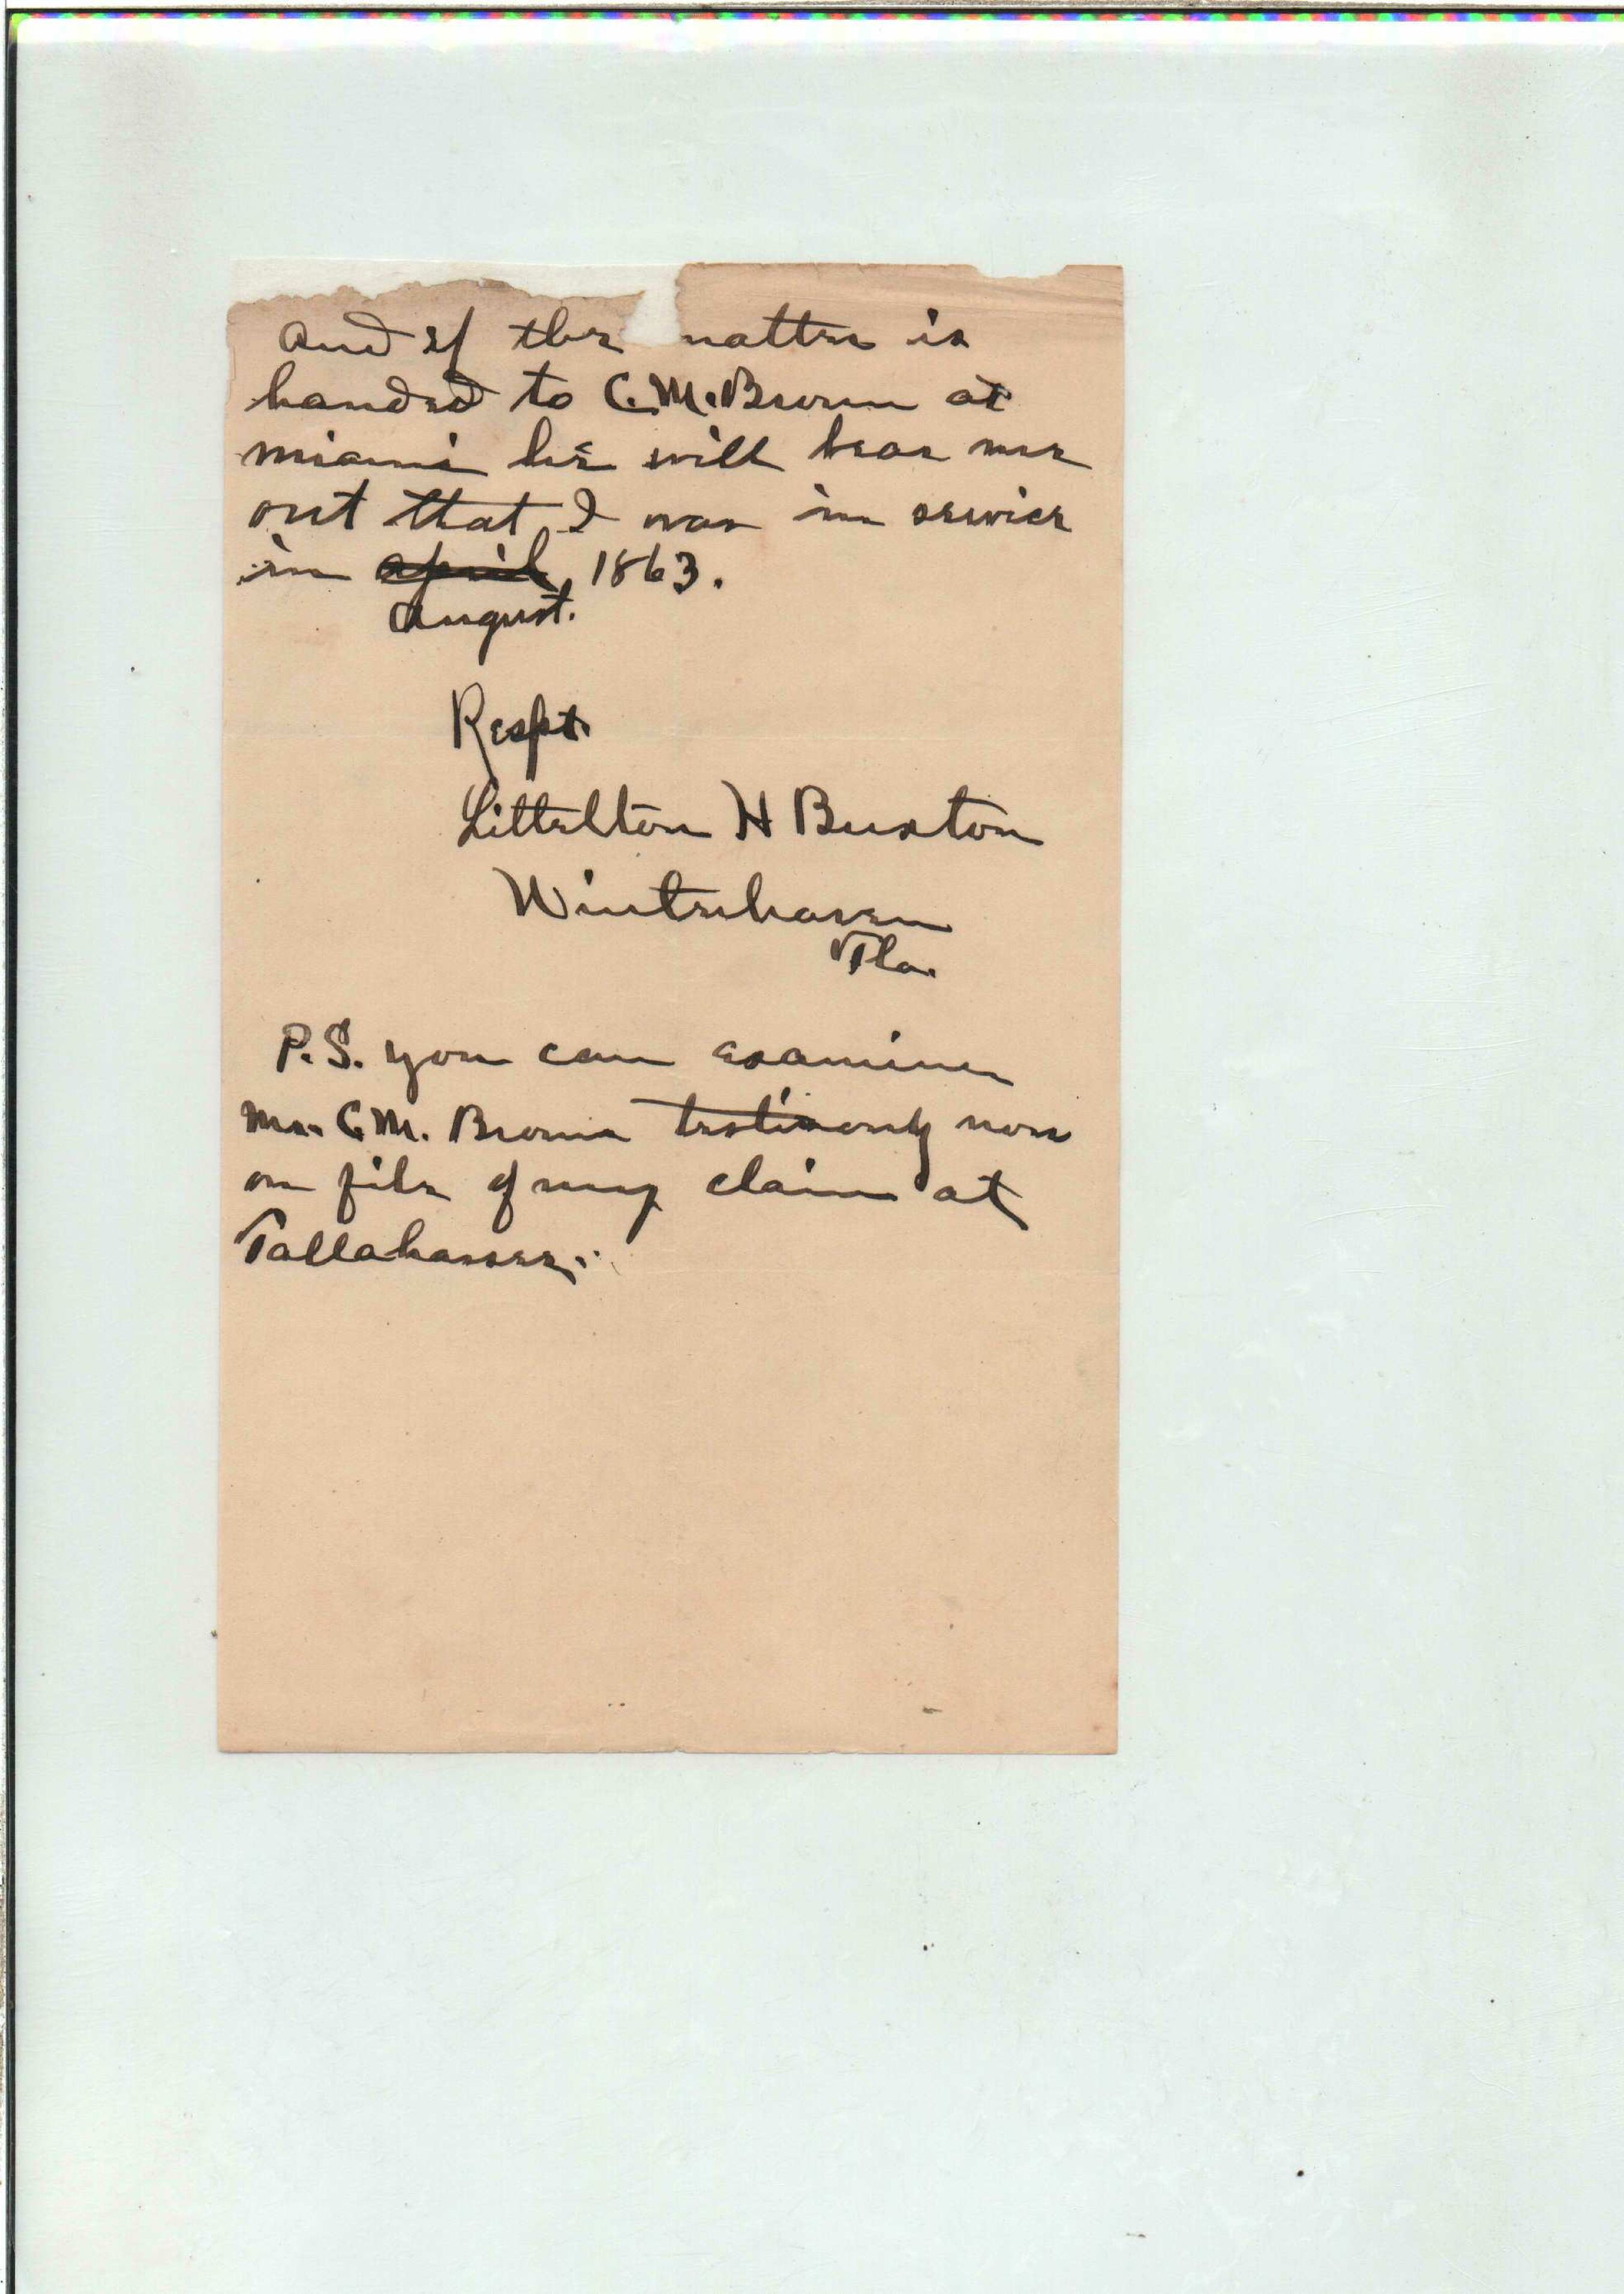 and if the matter is
handed to C.M. Brown at
miami he will bear me
out that I was in service
in april, 1863.
august.
Respt.
Littelton H Buxton
Winterhaven
Fla.
P.S. you can examine
Mr. C.M. Brown testimony now
on file of my claim at
Tallahassee.